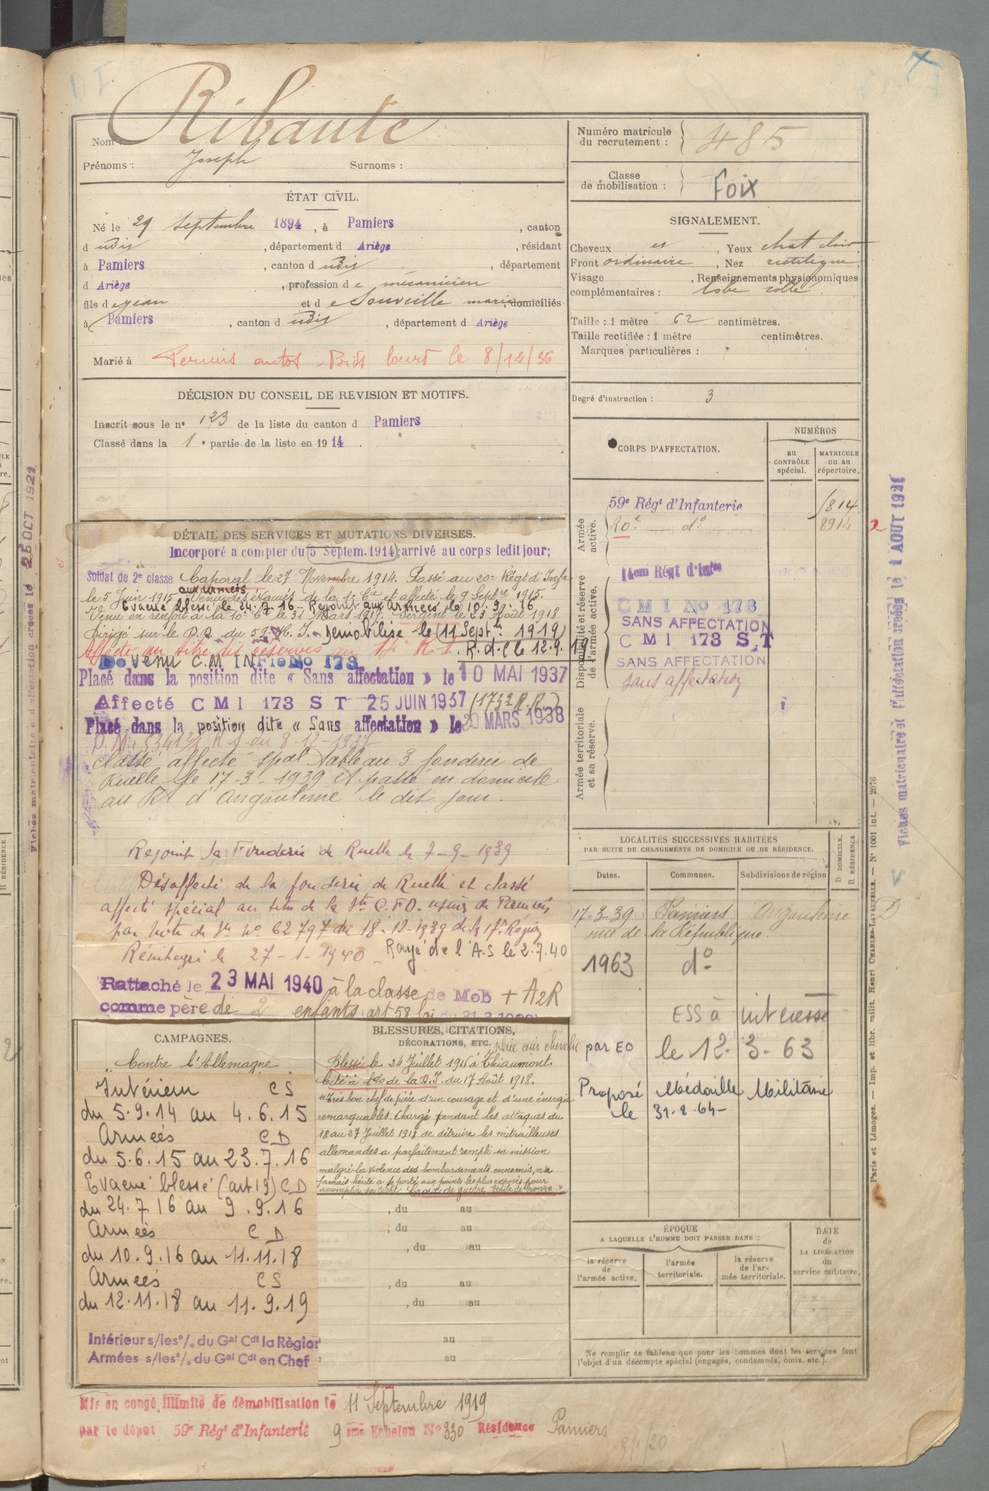 Nom : Ribaute
Prénoms : Joseph Surnoms :
Numéro matricule du recrutement : 485
Classe de mobilisation : Foix
ÉTAT CIVIL.
Né le 29 Septembre 1894, à Pamiers, canton
d udis, département d Ariège, résidant
à Pamiers, canton d udis, département
d Ariège, profession de mécanicien
fils de Jean et de Souveille Marie domiciliés
à Pamiers, canton d udis, département d Ariège
Marié à Permis autos Poids lourd le 8/12/36
SIGNALEMENT.
Cheveux, Yeux chat clair
Front ordinaire, Nez rectiligne
Visage, Renseignements physionomiques
complémentaires : lobe collé
Taille : 1 mètre 62 centimètres.
Taille rectifiée : 1 mètre centimètres.
Marques particulières :
Degré d'instruction : 3
DÉCISION DU CONSEIL DE REVISION ET MOTIFS.
Inscrit sous le n° 123 de la liste du canton d Pamiers
Classé dans la 1e partie de la liste en 1914.
CORPS D'AFFECTATION.
NUMÉROS
au CONTRÔLE spécial.
MATRICULE ou au répertoire.
Armée active.
59e Régt d'Infanterie 1814
20e d° 8914
Disponibilité et réserve de l'armée active.
14em Régt d'Infie
C M I No 173
SANS AFFECTATION
C M I 173 S.T
SANS AFFECTATION
Sans affectation
Armée territoriale et sa réserve.
DÉTAIL DES SERVICES ET MUTATIONS DIVERSES.
Incorporé a compter du 5 Septem. 1914 arrivé au corps ledit jour;
Soldat de 2e classe Caporal le 27 Novembre 1914. Passé au 20e Régt d'Infie
le 5 Juin 1915 aux armées
Evacué blessé le 24-7-16 - Rejoint aux armées le 10-9-16
Sergent le 25 Août 1918
Dirigé sur le D.D. du 59e R.I. - Démobilisé le (11 Septbre 1919)
R.d.C le 12.9.19
Devenu C.M INFie No 173
Placé dans la position dite « Sans affectation » le 10 MAI 1937
Affecté C M I 173 S T 25 JUIN 1937
Placé dans la position dite « Sans affectation » le 20 MARS 1938
Classé affecté spal Tableau 3 fonderie de
Ruelle le 17-3-1939 et passé en domicile
au Rt d'Angoulême le dit jour.
Rejoint la Fonderie de Ruelle le 7-9-1939
Désaffecté de la fonderie de Ruelle et classé
affecté spécial au titre de la Sté C.F.O. usines de Pamiers
par Note de Sce N° 62797 du 18-12-1939 de la 17e Région
27-1-1940 Rayé de l'A.S le 2.7.40
Rattaché le 23 MAI 1940 à la classe de Mob + A2R
comme père de 2 enfants art 58 loi du 31.3.1928
LOCALITÉS SUCCESSIVES HABITÉES
PAR SUITE DE CHANGEMENTS DE DOMICILE OU DE RÉSIDENCE.
Dates. Communes. Subdivisions de région
D DOMICILE.
R RÉSIDENCE.
17-3-39 Pamiers Angoulême D
rue de la République
1963 d°
ESS à intéressé
par EO le 12-3-63
Proposé Médaille Militaire
le 31-8-64-
CAMPAGNES.
Contre l'Allemagne
Intérieur CS
du 5.9.14 au 4.6.15
Armées CD
du 5.6.15 au 23.7.16
Evacué blessé (art 19) CD
du 24.7.16 au 9.9.16
Armées CD
du 10.9.16 au 11.11.18
Armées CS
du 12.11.18 au 11.9.19
Intérieur s/les°/. du Gal Cdt la Région
Armées s/les°/. du Gal Cdt en Chef
BLESSURES, CITATIONS,
DÉCORATIONS, ETC.
Blessé le 24 Juillet 1916 à Thiaumont
Cité à l'O. de la D.I. du 17 Août 1918.
"Très bon chef de pièce d'un courage et d'une énergie
remarquables. Chargé pendant les attaques du
18 au 27 Juillet 1918 de détruire les mitrailleuses
allemandes a parfaitement rempli sa mission
malgré la violence des bombardements ennemis, n'a
jamais hésité à se porter aux points les plus exposés pour
Croix de guerre Etoile de bronze
, du au
, du au
, du au
, du au
, du au
au
au
ÉPOQUE
A LAQUELLE L'HOMME DOIT PASSER DANS :
la réserve de l'armée active.
l'armée territoriale.
la réserve de l'armée territoriale.
DATE de LA LIBÉRATION du service militaire.
Ne remplir ce tableau que pour les hommes dont les services font
l'objet d'un décompte spécial (engagés, condamnés, omis, etc.).
Mis en congé illimité de démobilisation le 11 Septembre 1919
par le dépôt 59e Régt d'Infanterie 9eme Echelon No 330 Résidence Pamiers
Paris et Limoges. — Imp. et libr. milit. Henri CHARLES-LAVAUZELLE. — N° 1001 int. — 2876